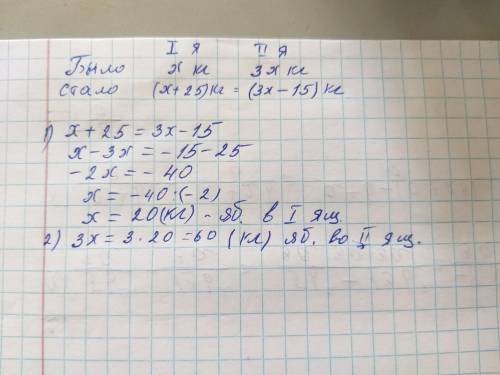 I я II я
Было x кг 3x кг
Стало (x+25) кг = (3x-15) кг
1) x + 25 = 3x - 15
x - 3x = -15 - 25
-2x = -40
x = -40:(-2)
x = 20(кг) - яб. в I ящ.
2) 3x = 3 · 20 = 60 (кг) яб. во II ящ.